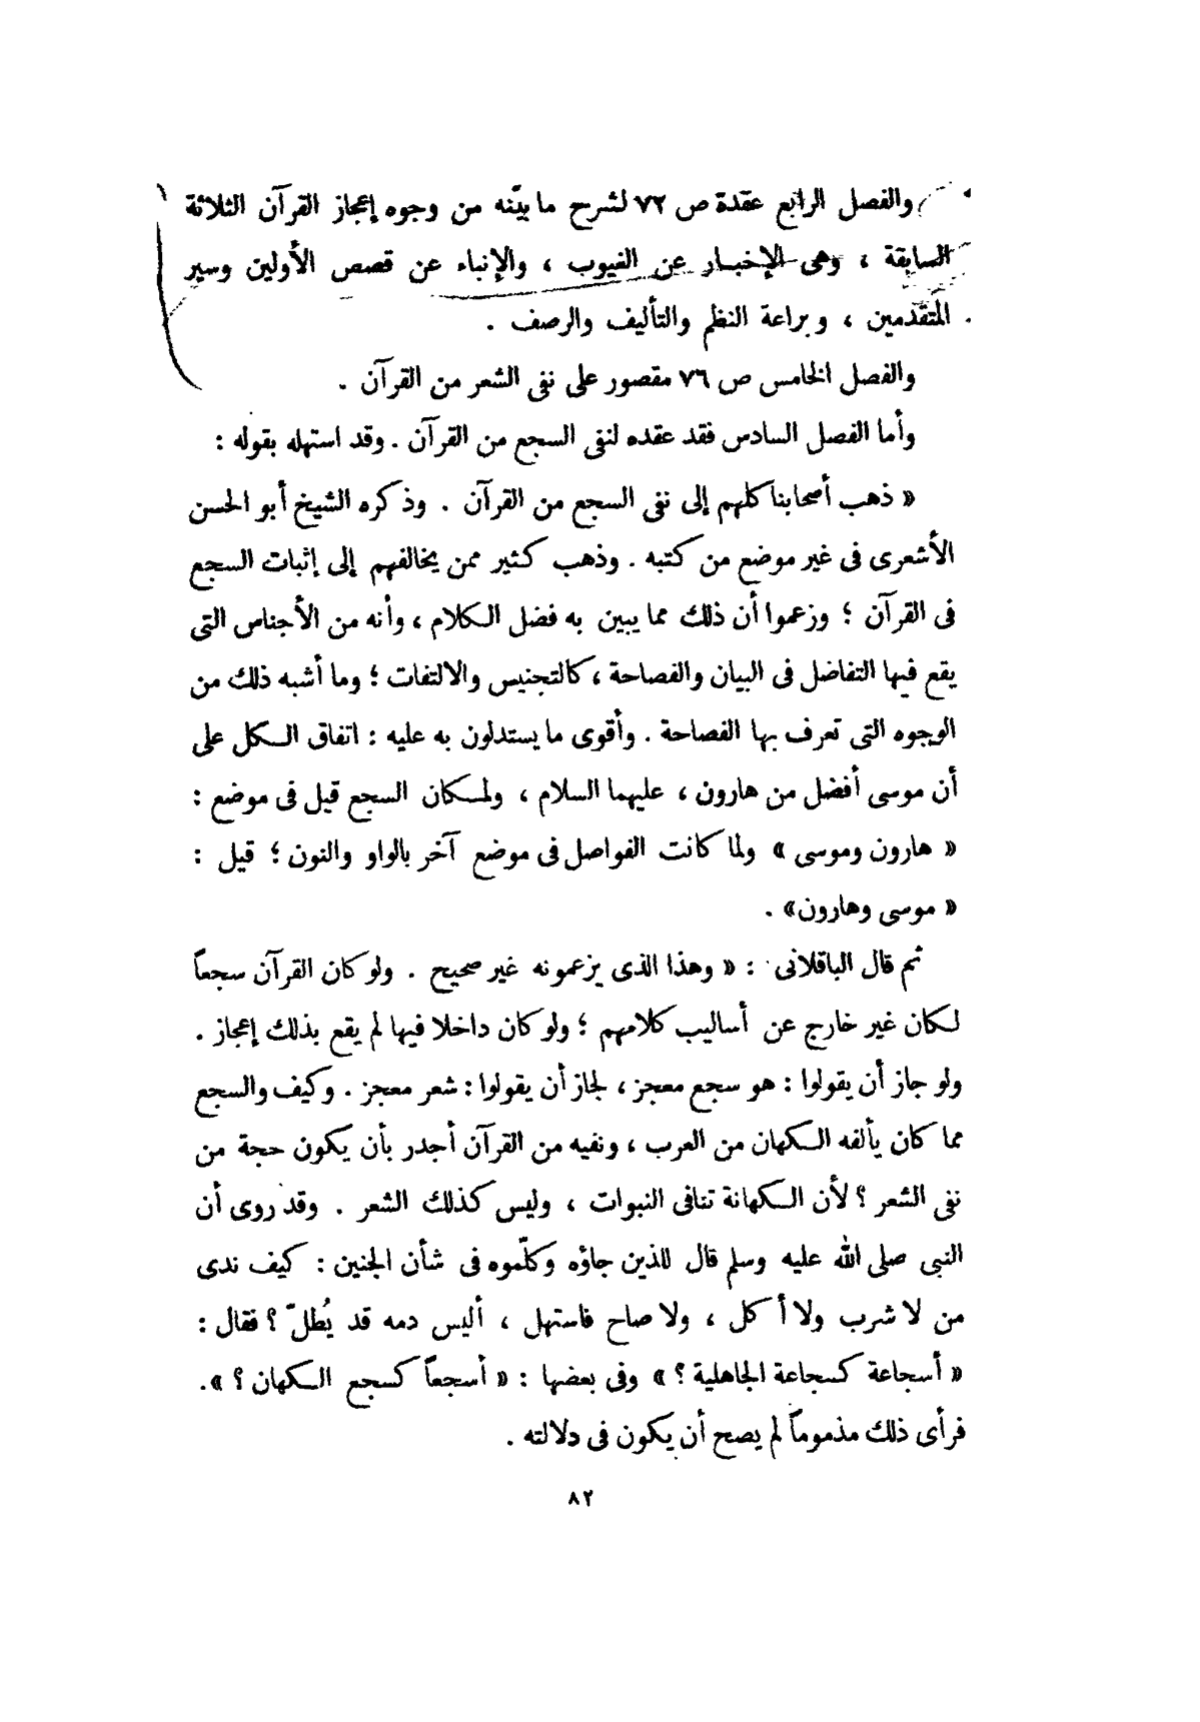 والفصل الرابع عقدة ص ٧٢ لشرح ما بيّنه من وجوه إعجاز القرآن الثلاثة
السابقة ، وهى الإخبار عن الغيوب ، والإنباء عن قصص الأولين وسير
المتقدمين ، وبراعة النظم والتأليف والرصف .
والفصل الخامس ص ٧٦ مقصور على نفى الشعر من القرآن .
وأما الفصل السادس فقد عقده لنفى السجع من القرآن . وقد استهله بقوله :
« ذهب أصحابنا كلهم إلى نفى السجع من القرآن . وذكره الشيخ أبو الحسن
الأشعرى فى غير موضع من كتبه . وذهب كثير ممن يخالفهم إلى إثبات السجع
فى القرآن ؛ وزعموا أن ذلك مما يبين به فضل الكلام ، وأنه من الأجناس التى
يقع فيها التفاضل فى البيان والفصاحة ، كالتجنيس والالتفات ؛ وما أشبه ذلك من
الوجوه التى تعرف بها الفصاحة . وأقوى ما يستدلون به عليه : اتفاق الكل على
أن موسى أفضل من هارون ، عليهما السلام ، ولمكان السجع قيل فى موضع :
« هارون وموسى » ولما كانت الفواصل فى موضع آخر بالواو والنون ؛ قيل :
« موسى وهارون» .
ثم قال الباقلانى : « وهذا الذى يزعمونه غير صحيح . ولو كان القرآن سجعاً
لكان غير خارج عن أساليب كلامهم ؛ ولو كان داخلا فيها لم يقع بذلك إعجاز .
ولو جاز أن يقولوا : هو سجع معجز ، لجاز أن يقولوا : شعر معجز . وكيف والسجع
مما كان يألفه الكهان من العرب ، ونفيه من القرآن أجدر بأن يكون حجة من
نفى الشعر ؟ لأن الكهانة تنافى النبوات ، وليس كذلك الشعر . وقد روى أن
النبى صلى الله عليه وسلم قال للذين جاؤه وكلّموه فى شأن الجنين : كيف ندى
من لا شرب ولا أكل ، ولا صاح فاستهل ، أليس دمه قد يُطلّ ؟ فقال :
« أسجاعة كسجاعة الجاهلية ؟ » وفى بعضها : « أسجعاً كسجع الكهان ؟ ».
فرأى ذلك مذموماً لم يصح أن يكون فى دلالته .
٨٢